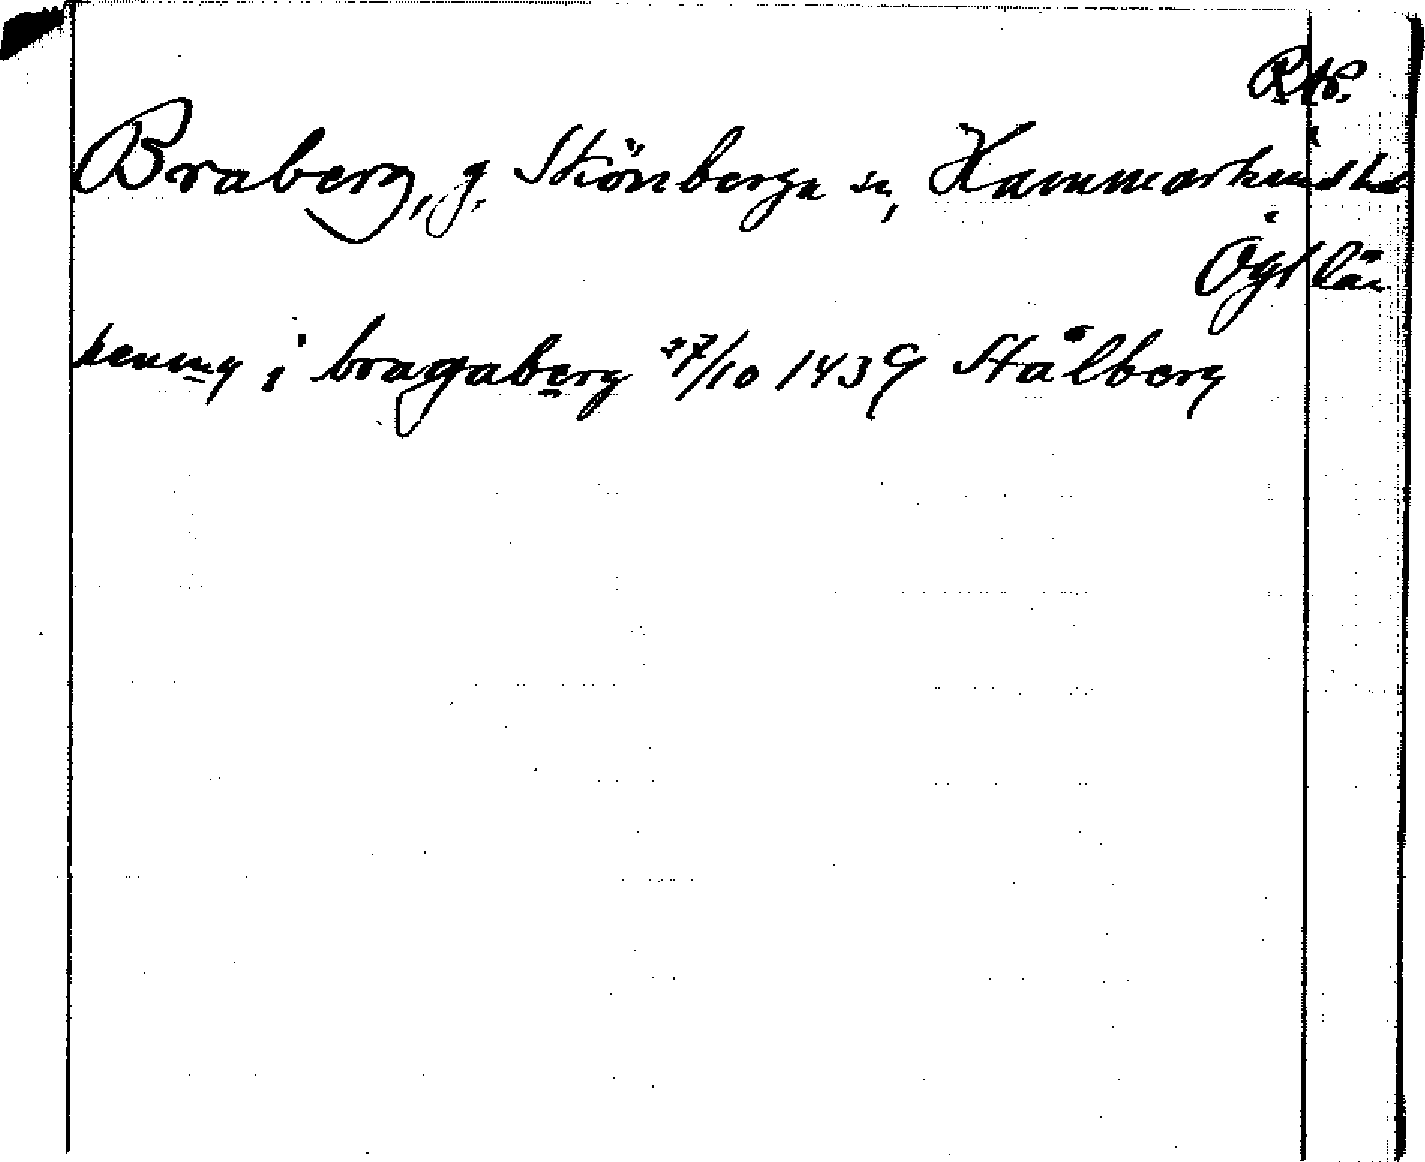 RAP.
Braberg, g. Skönberga sn, Hammarkinds hd
Ögl län
henung i bragaberg 27/10 1439 Stålberg